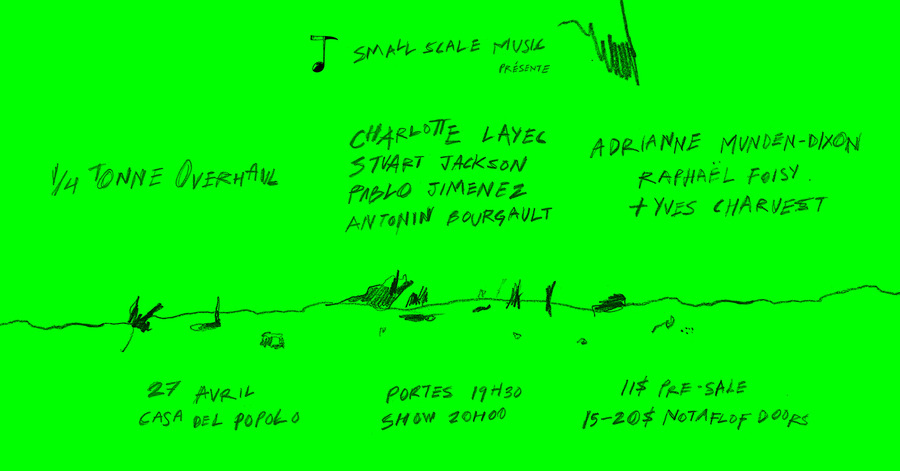 SMALL SCALE MUSIC
PRÉSENTE
1/4 TONNE OVERHAUL
CHARLOTTE LAYEC
STUART JACKSON
PABLO JIMENEZ
ANTONIN BOURGAULT
ADRIANNE MUNDEN-DIXON
RAPHAËL FOISY.
+ YVES CHARUEST
27 AVRIL
CASA DEL POPOLO
PORTES 19H30
SHOW 20H00
11$ PRE-SALE
15-20$ NOTAFLOF DOORS